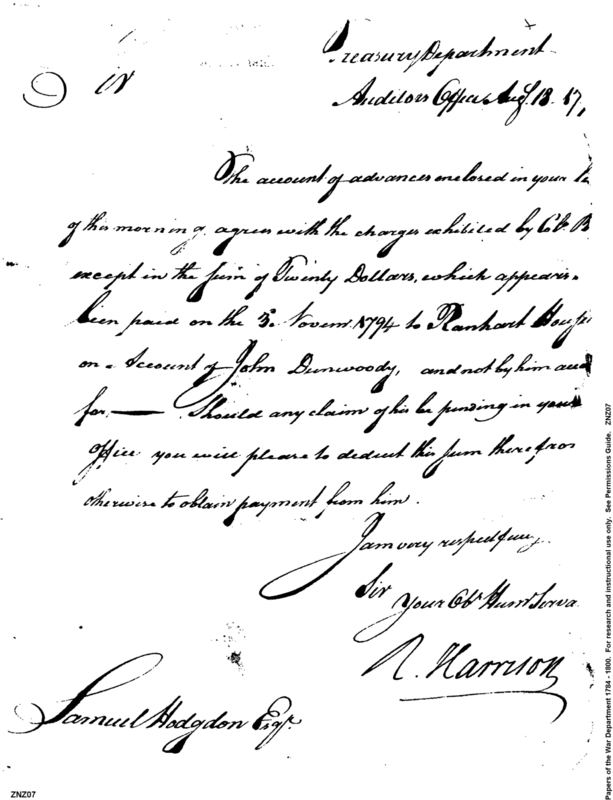 Treasury Department
Auditors Office Aug. 18. 17
Sir
The account of advances enclosed in your
of this morning, agrees with the charges exhibited by Col. B
except in the sum of Twenty Dollars, which appears
been paid on the 3. Novemr. 1794 to Ranhart House
on Account of John Dunwoody, and not by him
for. — Should any claim of his be pending in your
Office you will please to deduct this sum therefrom
otherwise to obtain payment from him.
I am very respectfuly
Sir
Your Obt. Humr Serva
R. Harrison
Samuel Hodgdon Esqr.
ZNZ07
Papers of the War Department 1784 - 1800. For research and instructional use only. See Permissions Guide. ZNZ07